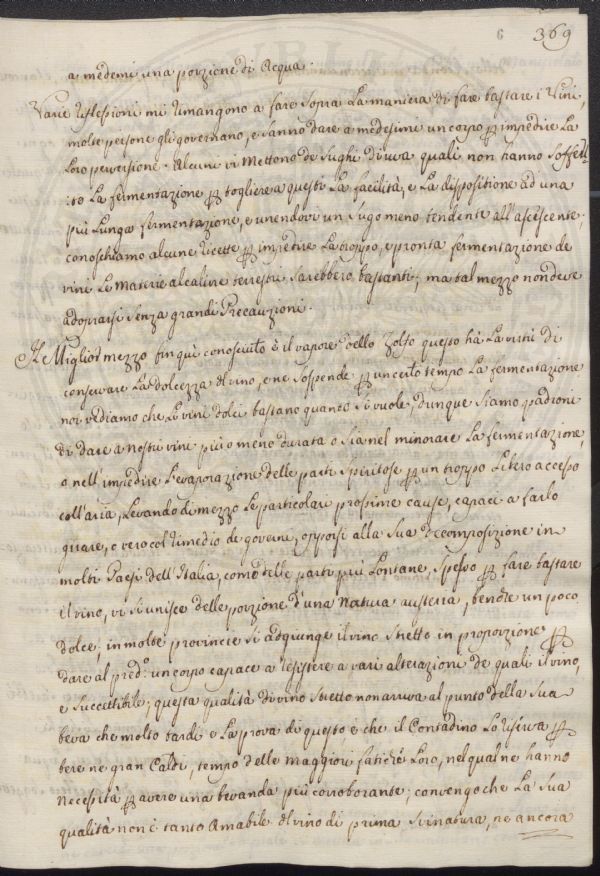 6 369
a medemi una porzione di Acqua.
Varie riflessioni mi rimangono a fare sopra La maniera di fare bastare i Vini,
molte persone gli governano, e sanno dare a medesimi un corpo per impedire La
Loro perversione. Alcuni vi Mettono de Sughi d'uva quali non hanno Soffer
:to La fermentazione per togliere a questi La facilità, e La disposizione ad una
più Lunga fermentazione, e unendovi un Sugo meno tendente all'ascescente;
conoschiamo alcune ricette per impedire La troppo, e pronta fermentazione de
vini Le Materie alcaline terrestri Sarebbero bastanti; ma tal mezzo non deve
adoprarsi Senza grandi Precauzioni.
Il Miglior mezzo fin quì conosciuto è il vapore dello Zolfo questo hà La virtù di
conservare La dolcezza al vino, e ne Sospende per un certo tempo La fermentazione
noi vediamo che Li vini dolci bastano quanto Si vuole, dunque Siamo padroni
di dare a nostri vini più o meno durata o Sia nel minorare La fermentazione,
o nell'impedire L'evaporazione delle parti Spiritose per un troppo Libero accesso
coll'aria, Levando di mezzo Le particolari prossime cause, capaci a farlo
girare, o vero col rimedio de governi, opporsi alla Sua decomposizione in
molti Paesi dell'Italia, come delle parti più Lontane, Spesso per fare bastare
il vino, vi Si unisce delle porzione d'una Natura austerra, benche un poco
dolce; in molte provincie Si adgiunge il vino Stretto in proporzione per
dare al pred.o un corpo capace a resistere a vari alterazioni de quali il vino,
e Succettibile; questa qualità di vino Stretto non arriva al punto della Sua
beva che molto tardi e La prova di questo è che il Contadino Lo riserva per
bere ne gran Caldi, tempo delle maggiori fatiche Loro, nel qual ne hanno
necessità per avere una bevanda più corroborante; convengo che La Sua
qualità non è tanto Amabile al vino di prima Svinatura, ne ancora